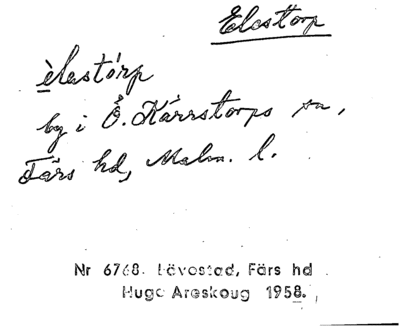 Elestorp
èlestórp
by i Ö. Kärrstorps sn,
Färs hd, Malm. l.
Nr 6768. Lövestad, Färs hd
Hugo Areskoug 1958.